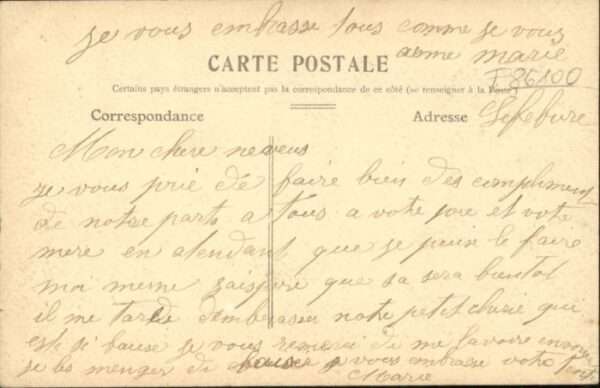 je vous embrasse tous comme je vous
aime marie
CARTE POSTALE
F 86100
Certains pays étrangers n'acceptent pas la correspondance de ce côté (se renseigner à la Poste)
Correspondance
Adresse
Lefebure
Mon chere neveus
je vous prie de faire bien des compliment
de notre parts a tous a votre pere et vote
mere en atendant que je puise le faire
moi meme jaispere que sa sera bientot
il me tarde dembrasser notre petit cherie qui
est si bause je vous remerci de me lavoire envoyer
je les manger de baiser je vous embrasse votre tante
Marie